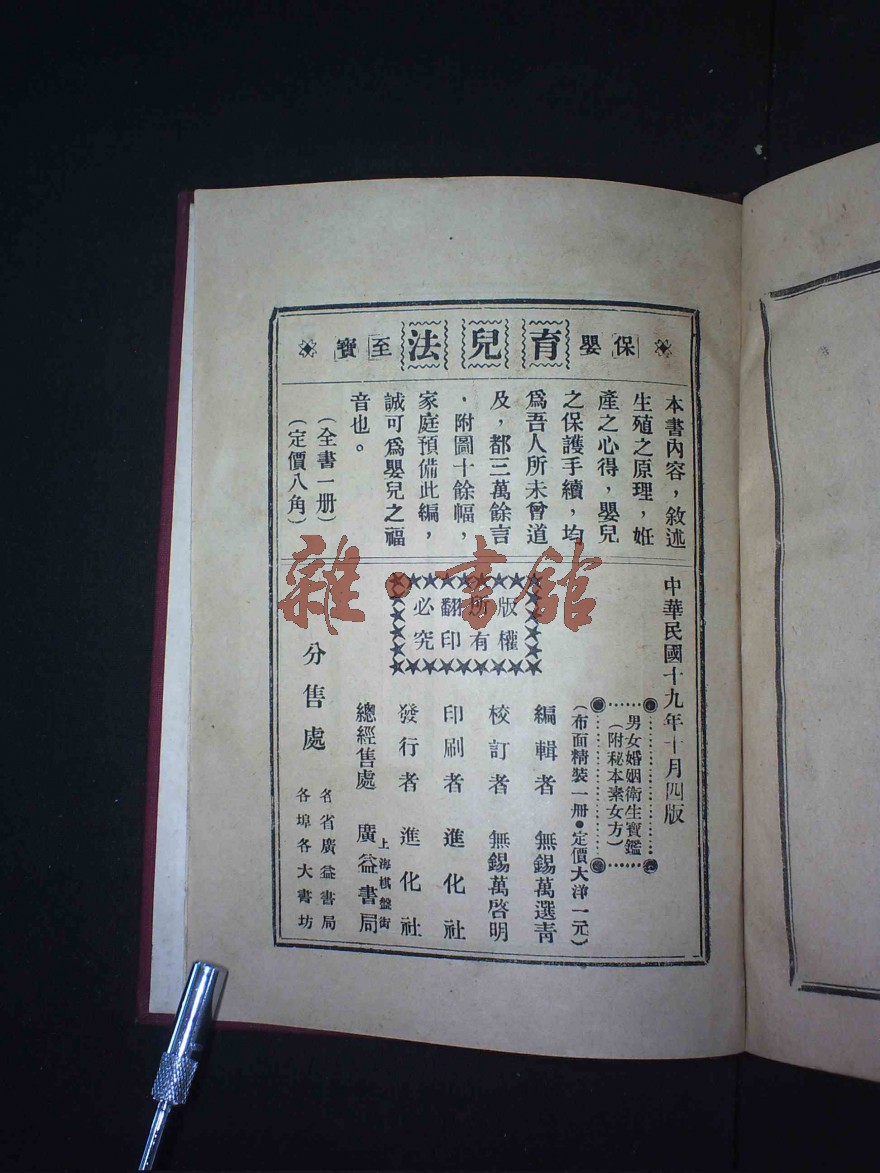 保嬰育兒法至寶
本書內容，敘述
生殖之原理，姙
產之心得，嬰兒
之保護手續，均
爲吾人所未曾道
及，都三萬餘言
，附圖十餘幅，
家庭預備此編，
誠可爲嬰兒之福
音也。
（全書一册）
（定價八角）
中華民國十九年十月四版
男女婚姻衛生寶鑑
（附秘本素女方）
（布面精裝一册●定價大洋一元）
版權
所有
翻印
必究
編輯者 無錫萬選靑
校訂者 無錫萬啓明
印刷者 進化社
發行者 進化社
總經售處 上海棋盤街廣益書局
分售處
各省廣益書局
各埠各大書坊
雜·書館